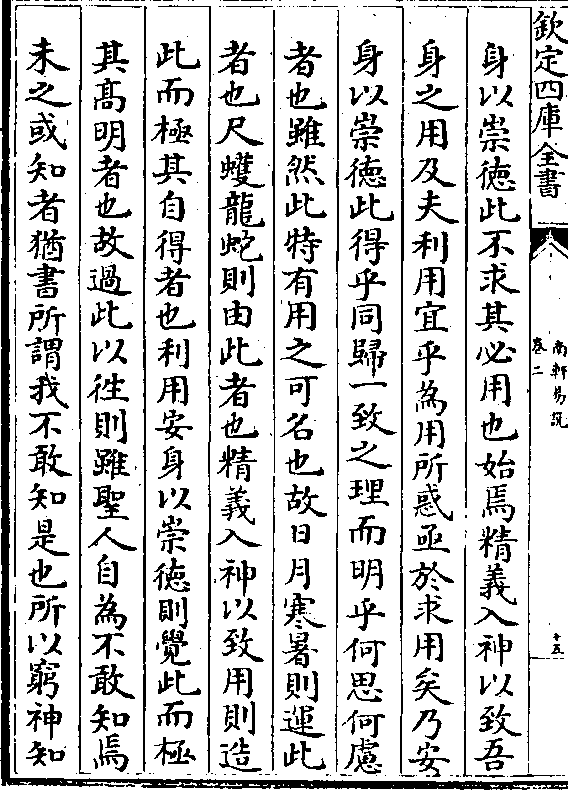 欽定四庫全書
南軒易說
卷二
十五
身以崇徳此不求其必用也始焉精義入神以致吾
身之用及夫利用宜乎為用所惑亟於求用矣乃安
身以崇徳此得乎同歸一致之理而明乎何思何慮
者也雖然此特有用之可名也故日月寒暑則運此
者也尺蠖龍蛇則由此者也精義入神以致用則造
此而極其自得者也利用安身以崇徳則覺此而極
其髙明者也故過此以徃則雖聖人自為不敢知焉
未之或知者猶書所謂我不敢知是也所以窮神知